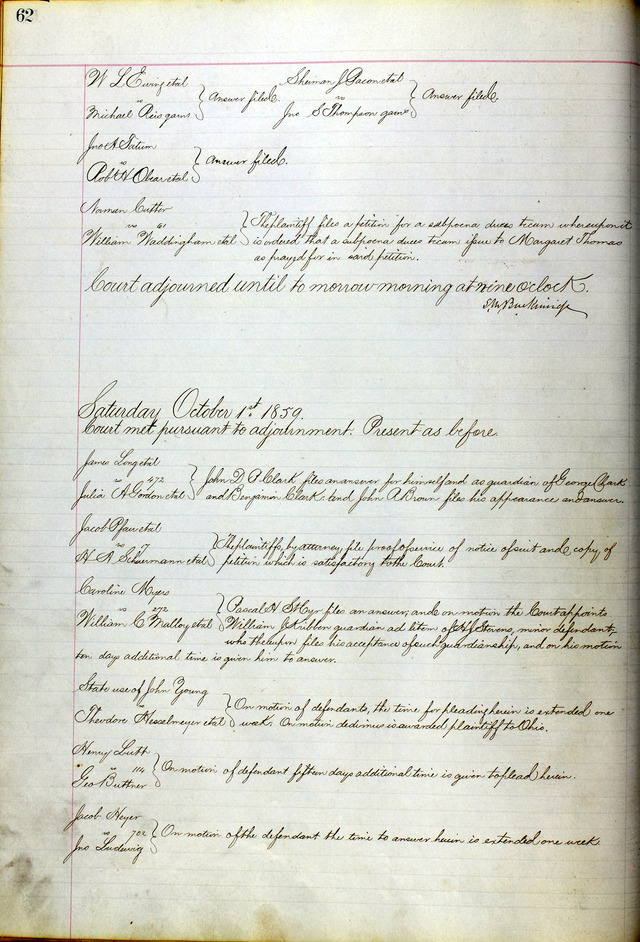 62
W L Ewing et al
vs
Michael Reis garns } Answer filed.
Sherman J Bacon et al
vs
Jno S Thompson garns } Answer filed.
Jno A Tatum
vs
Robt H Obear et al } Answer filed.
Norman Cutter
vs 61
William Waddingham et al
The plaintiff files a petition for a subpoena duces tecum whereupon it
is ordered that a subpoena duces tecum issue to Margaret Thomas
as prayed for in said petition.
Court adjourned until to morrow morning at nine o'clock.
Saturday October 1st. 1859.
Court met pursuant to adjournment. Present as before.
James Long et al
vs 472
Julia A Gordon et al
John D. A. Clark files an answer for himself and as guardian of George Clark
and Benjamin Clark. And John A Brown files his appearance and answer.
Jacob Pfau et al
vs
H A Scheurmann et al
The plaintiffs, by attorney, file proof of service of notice of suit and copy of
petition which is satisfactory to the Court.
Caroline Myers
vs 272
William C Mulloy et al
Pascal H St Cyr files an answer, and on motion the Court appoints
William J guardian ad litem of H J Stevens, minor defendant,
who thereupon files his acceptance of such guardianship, and on his motion
ten days additional time is given him to answer.
State use of John Young
vs
Theodore Hesselmeyer et al
On motion of defendants, the time for pleading herein is extended one
week. On motion dedimus is awarded plaintiff to Ohio.
Henry Lutt
vs 114
Geo Buttner
On motion of defendant fifteen days additional time is given to plead herein.
Jacob Heyer
vs 702
Jno Ludwig
On motion of the defendant the time to answer herein is extended one week.